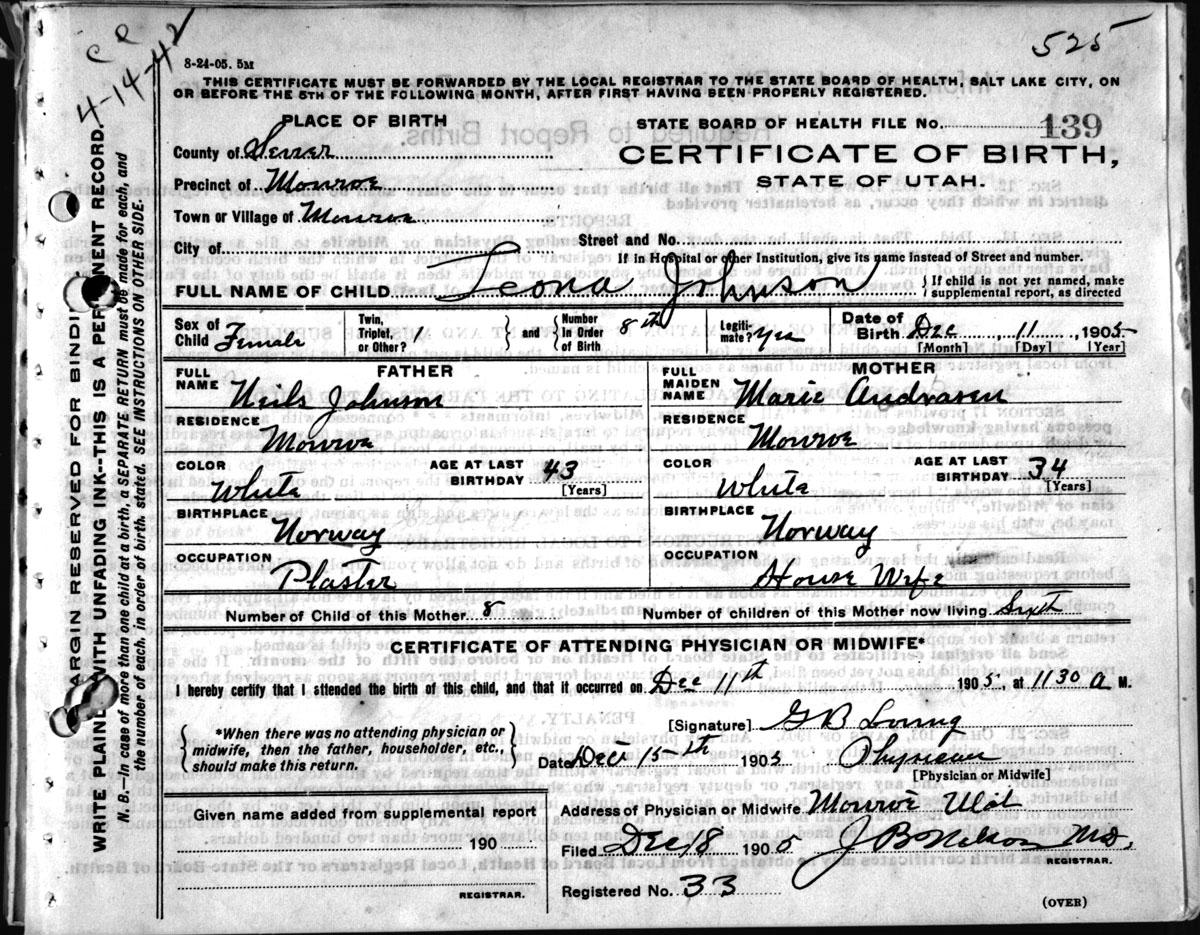 525
C R
4-14-42
8-24-05. 5M
THIS CERTIFICATE MUST BE FORWARDED BY THE LOCAL REGISTRAR TO THE STATE BOARD OF HEALTH, SALT LAKE CITY, ON
OR BEFORE THE 5TH OF THE FOLLOWING MONTH, AFTER FIRST HAVING BEEN PROPERLY REGISTERED.
PLACE OF BIRTH
STATE BOARD OF HEALTH FILE No. 139
County of Sevier
CERTIFICATE OF BIRTH,
Precinct of Monroe
STATE OF UTAH.
Town or Village of Monroe
City of
Street and No.
If in Hospital or other Institution, give its name instead of Street and number.
FULL NAME OF CHILD Leona Johnson { If child is not yet named, make supplemental report, as directed
Sex of Child Female Twin, Triplet, or Other? 1 } and { Number In Order of Birth 8th Legiti-mate? Yes Date of Birth Dec 11, 1905
[Month] [Day] [Year]
FATHER
FULL NAME Neils Johnson
RESIDENCE
Monroe
COLOR White AGE AT LAST BIRTHDAY 43
[Years]
BIRTHPLACE
Norway
OCCUPATION
Plaster
MOTHER
FULL MAIDEN NAME Marie Andrasen
RESIDENCE
Monroe
COLOR White AGE AT LAST BIRTHDAY 34
[Years]
BIRTHPLACE
Norway
OCCUPATION
House Wife
Number of Child of this Mother 8 Number of children of this Mother now living Sixth
CERTIFICATE OF ATTENDING PHYSICIAN OR MIDWIFE*
I hereby certify that I attended the birth of this child, and that it occurred on Dec 11th 1905, at 1130 a M.
{ *When there was no attending physician or midwife, then the father, householder, etc., should make this return. }
[Signature] G B Loring
Date Dec 15th 1905 Physician
[Physician or Midwife]
Given name added from supplemental report
190
REGISTRAR.
Address of Physician or Midwife Monroe Utah
Filed Dec 18 1905 J B Nelson MD.
REGISTRAR.
Registered No. 33
(OVER)
ARGIN RESERVED FOR BINDI
WRITE PLAIN WITH UNFADING INK--THIS IS A PERM NENT RECORD.
N. B.—In case of more than one child at a birth, a SEPARATE RETURN must be made for each, and
the number of each, in order of birth, stated. SEE INSTRUCTIONS ON OTHER SIDE.